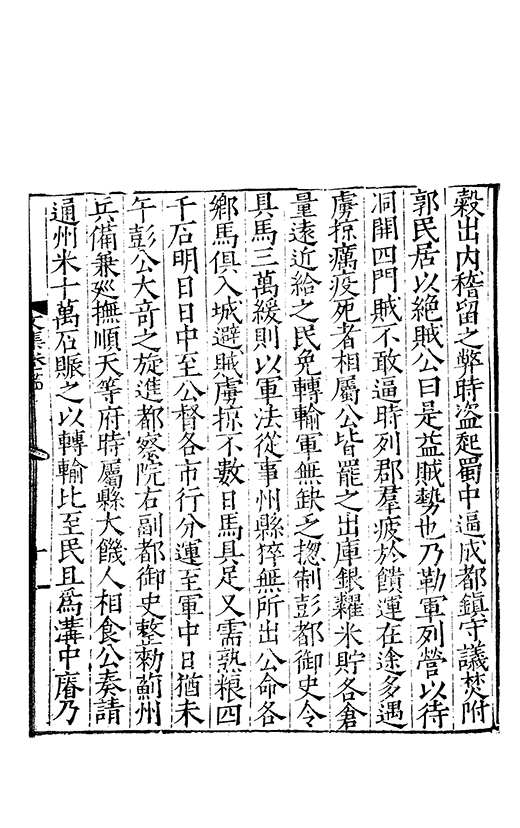 穀出内稽留之弊時盗起蜀中逼成都鎮守議焚附
郭民居以絶賊公曰是益賊勢也乃勒軍列營以待
洞開四門賊不敢逼時列郡羣疲於饋運在途多遇
虜掠癘疫死者相屬公皆罷之出庫銀糴米貯各倉
量遠近給之民免轉輸軍無缺乏揔制彭都御史令
具馬三萬緩則以軍法從事州縣猝無所出公命各
鄉馬俱入城避賊虜掠不數日馬具足又需熟粮四
千石明日日中至公督各市行分運至軍中日猶未
午彭公大竒之旋進都察院右副都御史整勑薊州
兵備兼廵撫順天等府時屬縣大饑人相食公奏請
通州米十萬石賑之以轉輸比至民且爲溝中瘠乃
文集卷
十